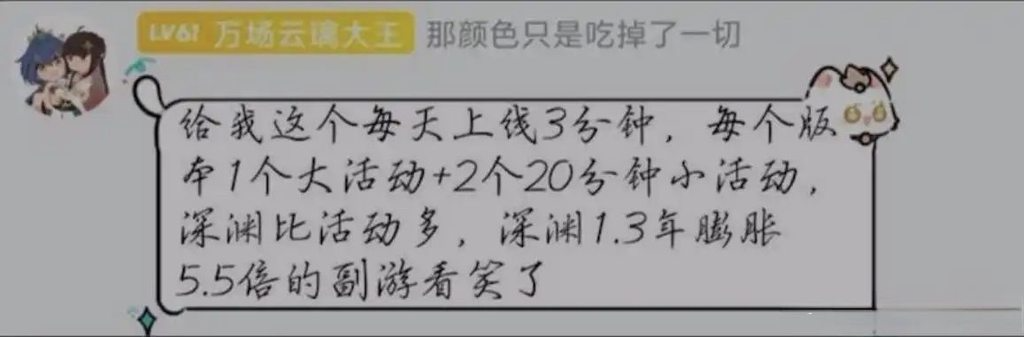 LV61 万场云璃大王 那颜色只是吃掉了一切
给我这个每天上线3分钟，每个版
本1个大活动+2个20分钟小活动，
深渊比活动多，深渊1.3年膨胀
5.5倍的副游看笑了